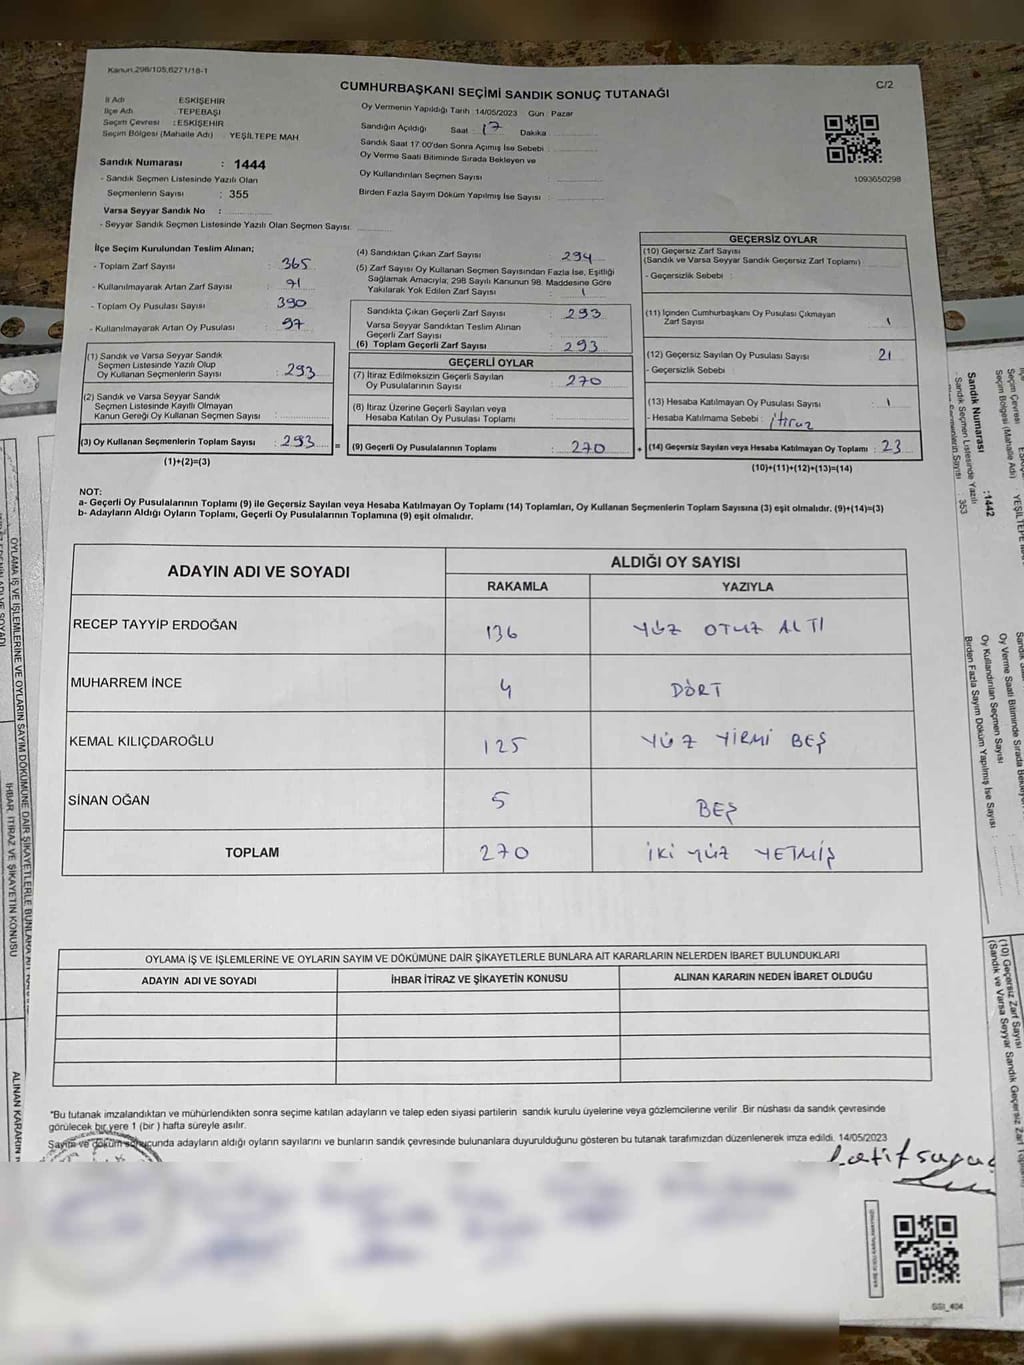 Kanun.298/105,6271/18-1
CUMHURBAŞKANI SEÇİMİ SANDIK SONUÇ TUTANAĞI
C/2
İl Adı ESKİŞEHİR
İlçe Adı : TEPEBAŞI
Seçim Çevresi : ESKİŞEHİR
Seçim Bölgesi (Mahalle Adı) : YEŞİLTEPE MAH
Sandık Numarası : 1444
- Sandık Seçmen Listesinde Yazılı Olan
Seçmenlerin Sayısı : 355
Varsa Seyyar Sandık No :
- Seyyar Sandık Seçmen Listesinde Yazılı Olan Seçmen Sayısı:
Oy Vermenin Yapıldığı Tarih :14/05/2023 Gün : Pazar
Sandığın Açıldığı Saat : 17 Dakika :
Sandık Saat 17:00'den Sonra Açımış İse Sebebi :
Oy Verme Saati Bitiminde Sırada Bekleyen ve
Oy Kullandırılan Seçmen Sayısı :
Birden Fazla Sayım Döküm Yapılmış İse Sayısı :
1093650298
İlçe Seçim Kurulundan Teslim Alınan;
- Toplam Zarf Sayısı : 365
- Kullanılmayarak Artan Zarf Sayısı : 71
- Toplam Oy Pusulası Sayısı : 390
- Kullanılmayarak Artan Oy Pusulası : 97
(1) Sandık ve Varsa Seyyar Sandık
Seçmen Listesinde Yazılı Olup
Oy Kullanan Seçmenlerin Sayısı : 293
(2) Sandık ve Varsa Seyyar Sandık
Seçmen Listesinde Kayıtlı Olmayan
Kanun Gereği Oy Kullanan Seçmen Sayısı :
(3) Oy Kullanan Seçmenlerin Toplam Sayısı : 293 =
(1)+(2)=(3)
(4) Sandıktan Çıkan Zarf Sayısı : 294
(5) Zarf Sayısı Oy Kullanan Seçmen Sayısından Fazla İse, Eşitliği
Sağlamak Amacıyla; 298 Sayılı Kanunun 98. Maddesine Göre
Yakılarak Yok Edilen Zarf Sayısı : 1
Sandıkta Çıkan Geçerli Zarf Sayısı : 293
Varsa Seyyar Sandıktan Teslim Alınan
Geçerli Zarf Sayısı :
(6) Toplam Geçerli Zarf Sayısı : 293
GEÇERLİ OYLAR
(7) İtiraz Edilmeksizin Geçerli Sayılan
Oy Pusulalarının Sayısı : 270
(8) İtiraz Üzerine Geçerli Sayılan veya
Hesaba Katılan Oy Pusulası Toplamı :
(9) Geçerli Oy Pusulalarının Toplamı : 270 +
GEÇERSİZ OYLAR
(10) Geçersiz Zarf Sayısı
(Sandık ve Varsa Seyyar Sandık Geçersiz Zarf Toplamı) :
- Geçersizlik Sebebi :
(11) İçinden Cumhurbaşkanı Oy Pusulası Çıkmayan
Zarf Sayısı : 1
(12) Geçersiz Sayılan Oy Pusulası Sayısı : 21
- Geçersizlik Sebebi :
(13) Hesaba Katılmayan Oy Pusulası Sayısı : 1
- Hesaba Katılmama Sebebi : itiraz
(14) Geçersiz Sayılan veya Hesaba Katılmayan Oy Toplamı : 23
(10)+(11)+(12)+(13)=(14)
NOT:
a- Geçerli Oy Pusulalarının Toplamı (9) ile Geçersiz Sayılan veya Hesaba Katılmayan Oy Toplamı (14) Toplamları, Oy Kullanan Seçmenlerin Toplam Sayısına (3) eşit olmalıdır. (9)+(14)=(3)
b- Adayların Aldığı Oyların Toplamı, Geçerli Oy Pusulalarının Toplamına (9) eşit olmalıdır.
ADAYIN ADI VE SOYADI
ALDIĞI OY SAYISI
RAKAMLA YAZIYLA
RECEP TAYYİP ERDOĞAN 136 YÜZ OTUZ ALTI
MUHARREM İNCE 4 DÖRT
KEMAL KILIÇDAROĞLU 125 YÜZ YİRMİ BEŞ
SİNAN OĞAN 5 BEŞ
TOPLAM 270 İKİ YÜZ YETMİŞ
OYLAMA İŞ VE İŞLEMLERİNE VE OYLARIN SAYIM VE DÖKÜMÜNE DAİR ŞİKAYETLERLE BUNLARA AİT KARARLARIN NELERDEN İBARET BULUNDUKLARI
ADAYIN ADI VE SOYADI İHBAR İTİRAZ VE ŞİKAYETİN KONUSU ALINAN KARARIN NEDEN İBARET OLDUĞU
"Bu tutanak imzalandıktan ve mühürlendikten sonra seçime katılan adayların ve talep eden siyasi partilerin sandık kurulu üyelerine veya gözlemcilerine verilir .Bir nüshası da sandık çevresinde
görülecek bir yere 1 (bir ) hafta süreyle asılır.
Sayım ve döküm sonucunda adayların aldığı oyların sayılarını ve bunların sandık çevresinde bulunanlara duyurulduğunu gösteren bu tutanak tarafımızdan düzenlenerek imza edildi. 14/05/2023
GSI_404
OYLAMA İŞ VE İŞLEMLERİNE VE OYLARIN SAYIM VE DÖKÜMÜNE DAİR ŞİKAYETLERLE
İHBAR İTİRAZ VE ŞİKAYETİN KONUSU
ALINAN KARARIN
Seçim Çevresi
Seçim Bölgesi (Mahalle Adı) YEŞİLTEPE
Sandık Numarası :1442
- Sandık Seçmen Listesinde Yazılı
353
Oy Verme Saati Bitiminde Sırada
Oy Kullandırılan Seçmen Sayısı
Birden Fazla Sayım Döküm Yapılmış İse Sayısı
(10) Geçersiz Zarf Sayısı
(Sandık ve Varsa Seyyar Sandık Geçersiz Zarf